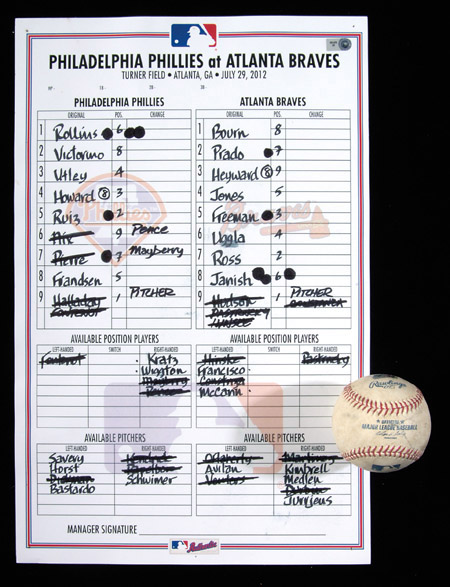 PHILADELPHIA PHILLIES at ATLANTA BRAVES
TURNER FIELD • ATLANTA, GA • JULY 29, 2012
HP- 1B- 2B- 3B-
PHILADELPHIA PHILLIES ATLANTA BRAVES
ORIGINAL POS. CHANGE ORIGINAL POS. CHANGE
1 Rollins 6 1 Bourn 8
2 Victorino 8 2 Prado 7
3 Utley 4 3 Heyward 9 9
4 Howard 8 3 4 Jones 5
5 Ruiz 2 5 Freeman 3
6 Nix 9 Pence 6 Uggla 4
7 Pierre 7 Mayberry 7 Ross 2
8 Frandsen 5 8 Janish 6
9 Halladay 1 PITCHER 9 Hudson 1 PITCHER
Contreras Pastornicky
Hinske
AVAILABLE POSITION PLAYERS AVAILABLE POSITION PLAYERS
LEFT-HANDED SWITCH RIGHT-HANDED LEFT-HANDED SWITCH RIGHT-HANDED
Kratz Hinske Pastornicky
Wigginton Francisco
Mayberry Constanza
Pence McCann
AVAILABLE PITCHERS AVAILABLE PITCHERS
LEFT-HANDED RIGHT-HANDED LEFT-HANDED RIGHT-HANDED
Savery Kendrick O'Flaherty Martinez
Horst Papelbon Avilan Kimbrel
Diekman Schwimer Venters Medlen
Bastardo Durbin
Jurrjens
MANAGER SIGNATURE
Braves
Rawlings
OFFICIAL
MAJOR LEAGUE BASEBALL